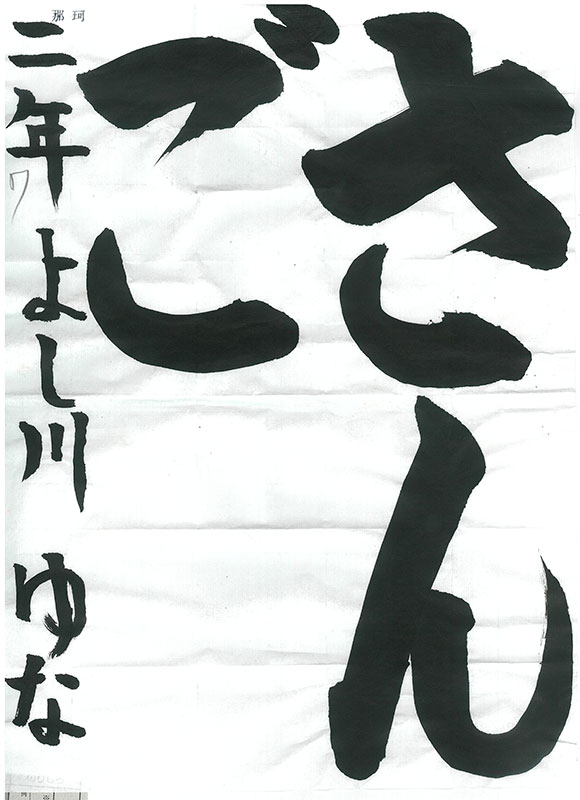 さん
ご
二年 よし川 ゆな
那珂